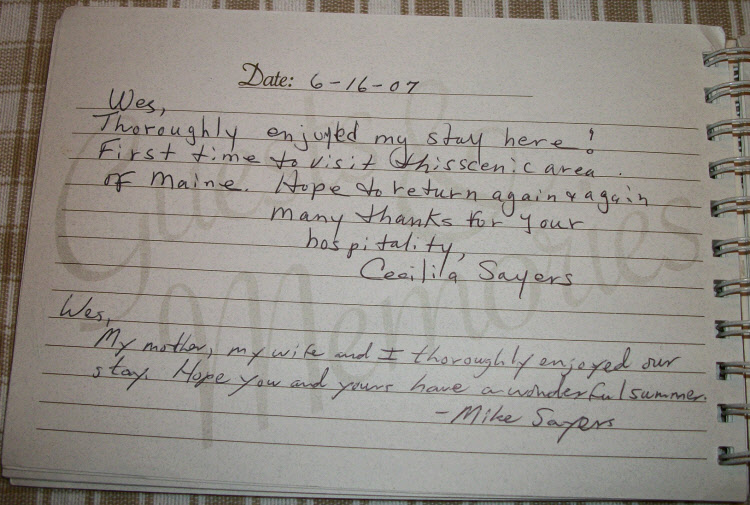 Date: 6-16-07
Wes,
Thoroughly enjoyed my stay here!
First time to visit this scenic area.
of Maine. Hope to return again & again
Many thanks for your
hospitality,
Cecilila Sayers
Wes,
My mother, my wife and I thoroughly enjoyed our
stay. Hope you and yours have a wonderful summer.
- Mike Sayers
Guests &
Memories